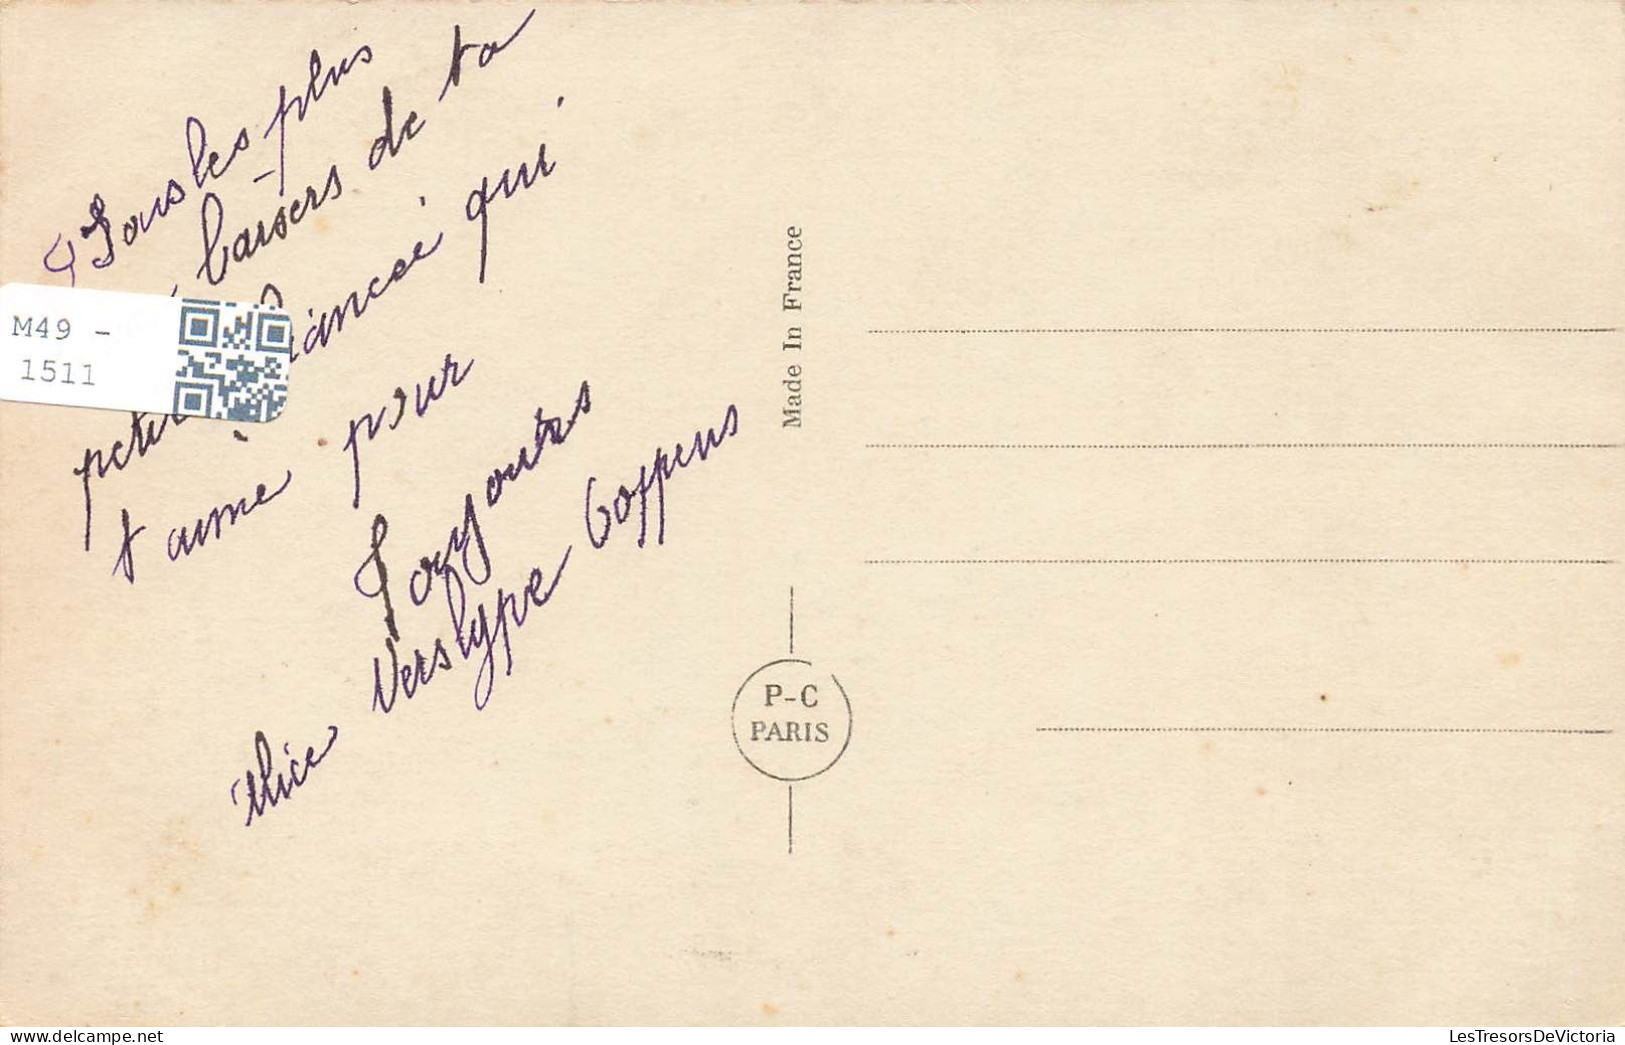 Tous les plus
baisers de ta
petite fiancée qui
t'aime pour
Toujours
Alice Verslype Coppens
M49 -
1511
Made In France
P-C
PARIS
LesTresorsDeVictoria.com